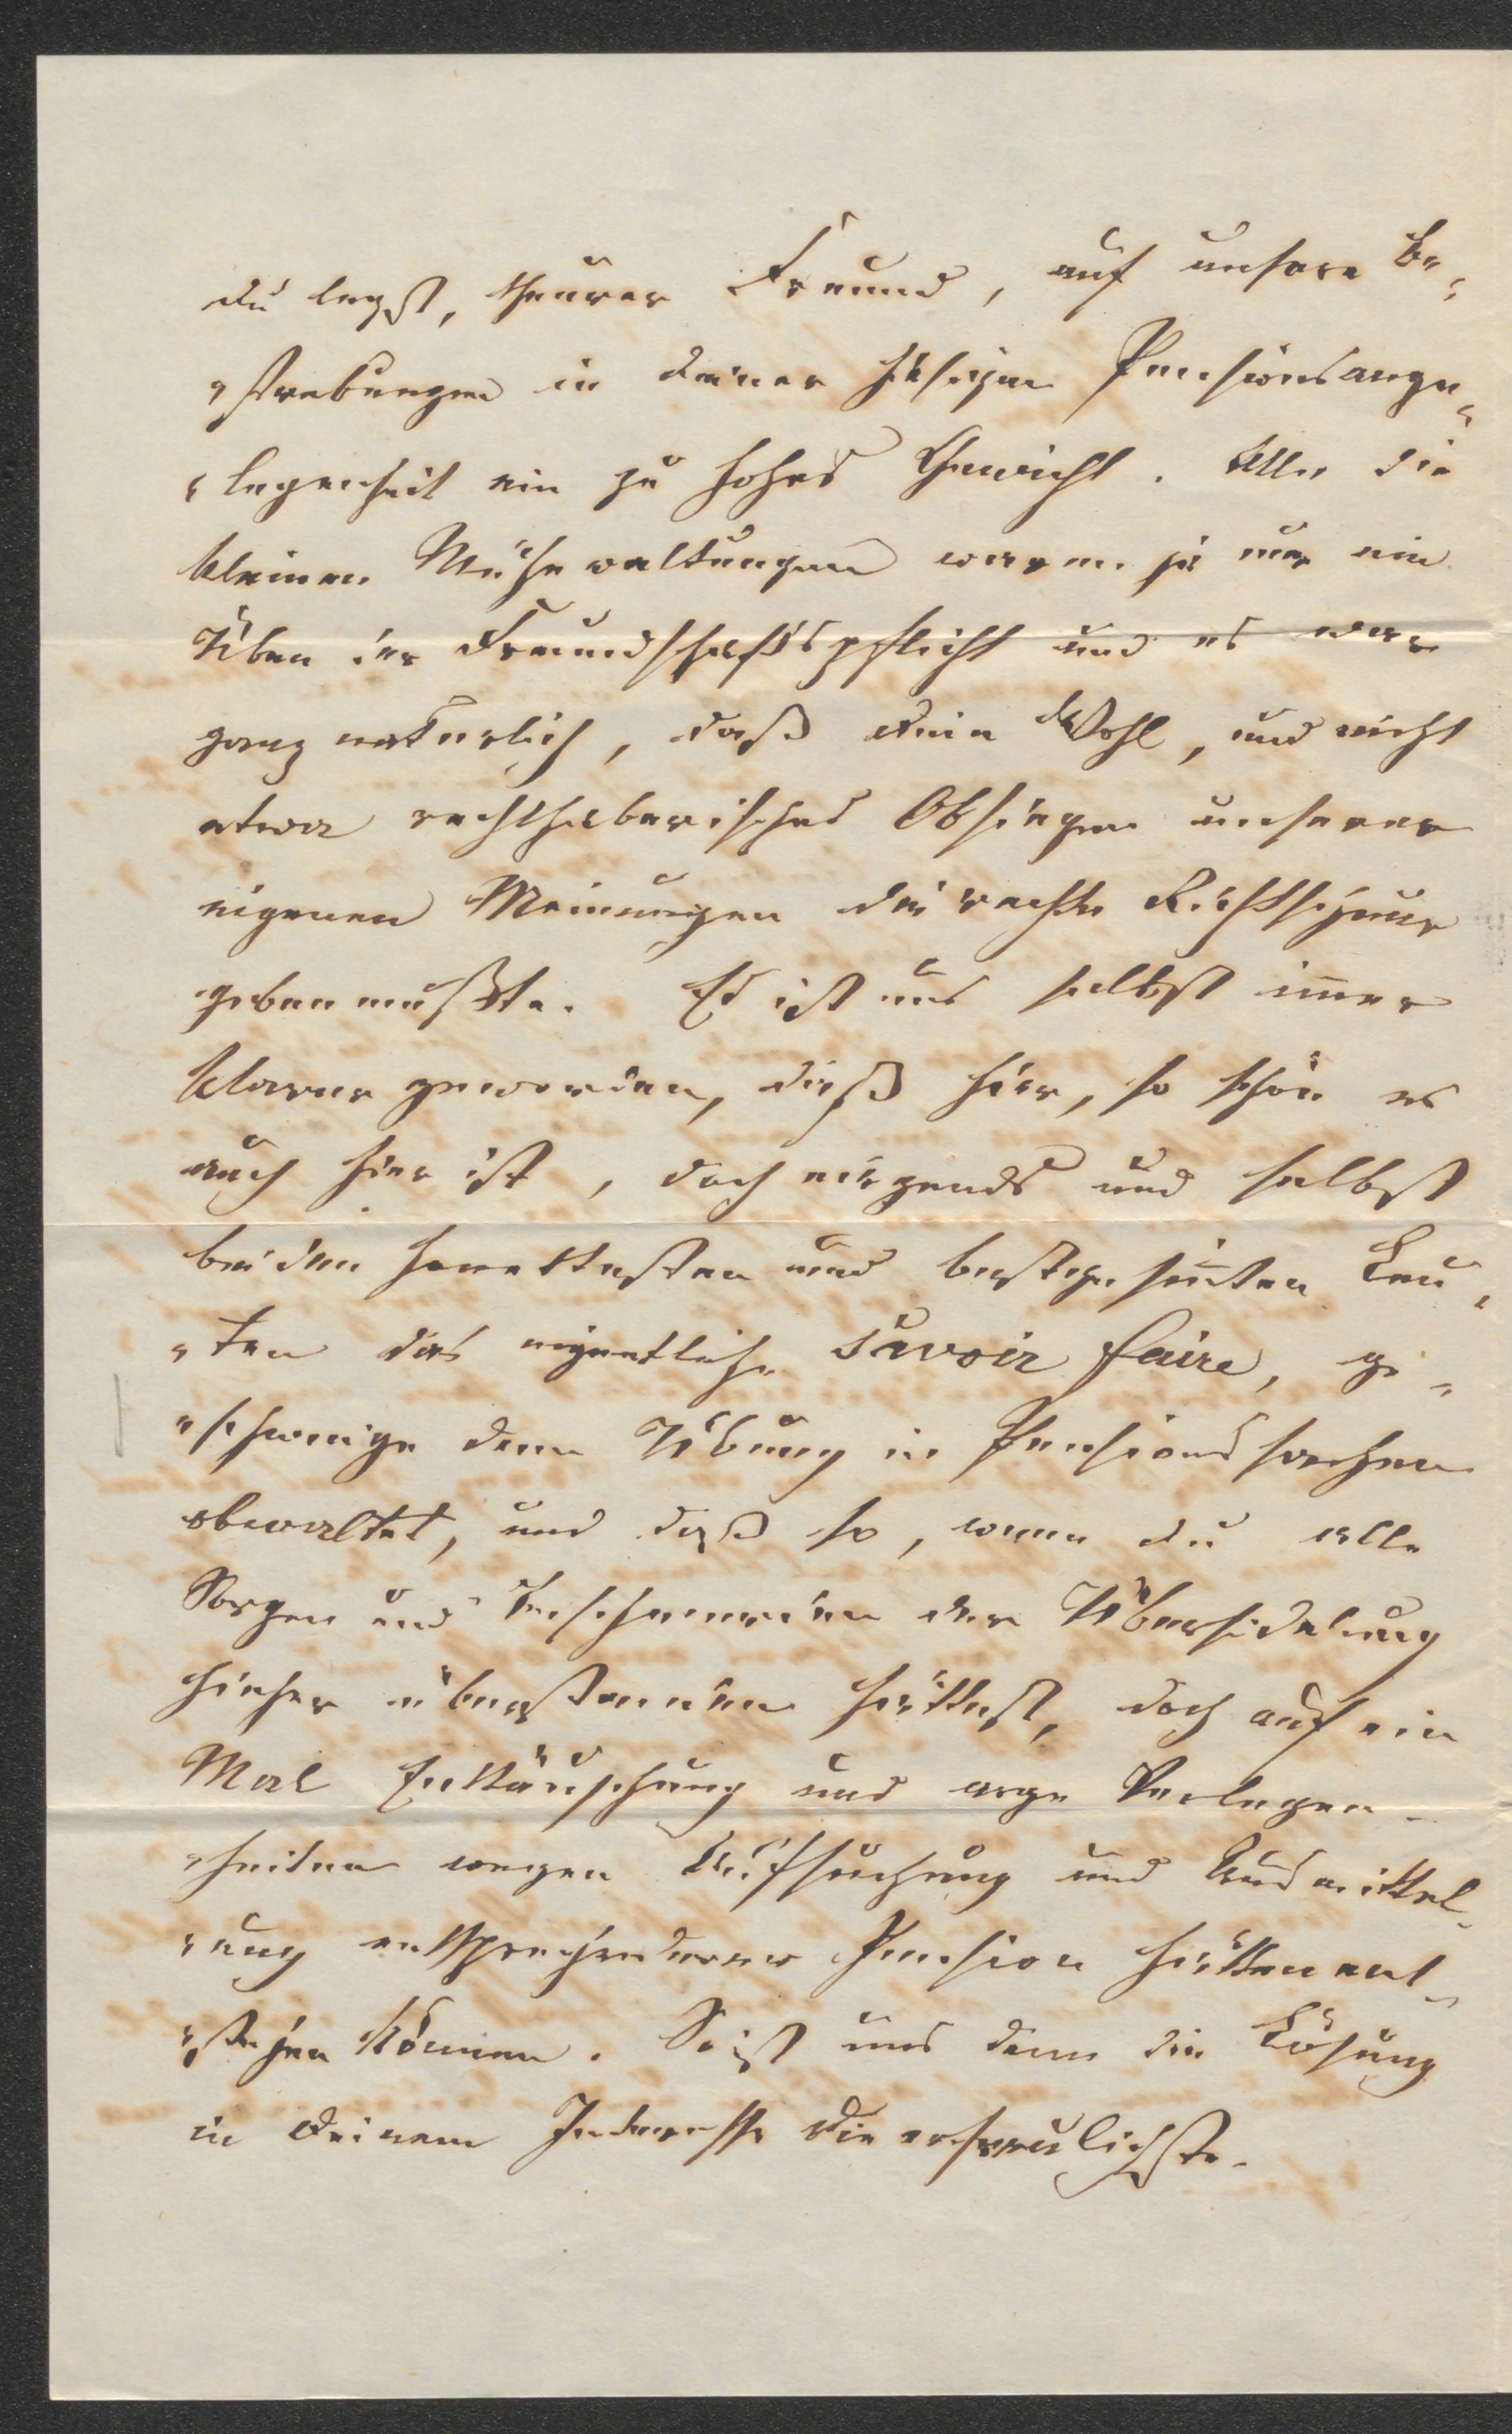 du legst, theurer Freund, auf unsere Be-
-strebungen in deiner hiesigen Pensionsange-
-legenheit ein zu hohes Gewicht. Alle die
kleinen Mühewaltungen waren ja nur ein
Üben der Freundschaftspflicht und es war
ganz natürlich, daß dein Wohl, und nicht
etwa rechthaberisches Obsiegen unserer
eigenen Meinungen die rechte Richtschnur
geben mußte. Es ist uns selbst im̄er
klarer geworden, daß hier, so schön es
auch hier ist, doch nirgends und selbst
bei den honettesten und bestgesin̄ten Leu-
-ten das eigentliche savoir faire, ge-
-schweige denn Übung in Pensionssachen
obwaltet, und daß so, wenn du alle
Sorgen und Beschwerden der Übersiedelung
hieher überstanden hättest, doch auf ein
Mal Enttäuschung und arge Verlegen-
-heiten wegen Aufsuchung und Ausmittel-
-ung entsprechenderer Pension hätten ent-
-stehen können. So ist uns denn die Lösung
in deinem Interesse die erfreulichste.